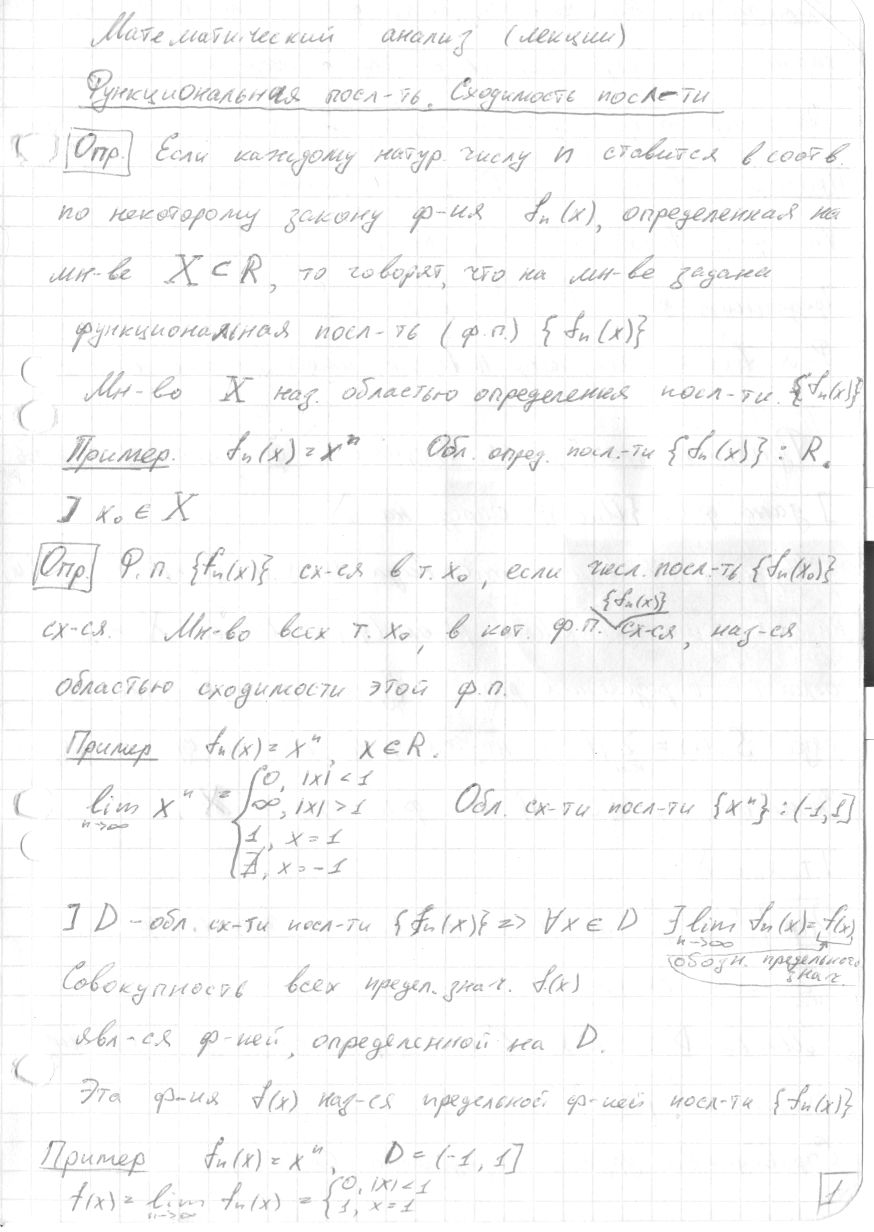 Математический анализ (лекции)
Функциональная посл-ть. Сходимость посл-ти
Опр. Если каждому натур. числу n ставится в соотв.
по некоторому закону ф-ия fn(x), определенная на
мн-ве X ⊂ R, то говорят, что на мн-ве задана
функциональная посл-ть (ф.п.) {fn(x)}
Мн-во X наз. областью определения посл-ти {fn(x)}
Пример. fn(x) = x^n Обл. опред. посл.-ти {fn(x)} : R.
] x₀ ∈ X
Опр. Ф.п. {fn(x)} сх-ся в т. x₀, если числ. посл.-ть {fn(x₀)}
сх-ся. Мн-во всех т. x₀, в кот. ф.п. {fn(x)} сх-ся, наз-ся
областью сходимости этой ф.п.
Пример fn(x) = x^n, x ∈ R.
lim n→∞ x^n = { 0, |x| < 1
∞, |x| > 1
1, x = 1
∄, x = -1
Обл. сх-ти посл-ти {x^n} : (-1, 1]
] D – обл. сх-ти посл-ти {fn(x)} => ∀x ∈ D ∃ lim n→∞ fn(x) = f(x)
обозн. предельного
знач.
Совокупность всех предел. знач. f(x)
явл-ся ф-ией, определенной на D.
Эта ф-ия f(x) наз-ся предельной ф-ией посл-ти {fn(x)}
Пример fn(x) = x^n, D = (-1, 1]
f(x) = lim n→∞ fn(x) = { 0, |x| < 1
1, x = 1
1